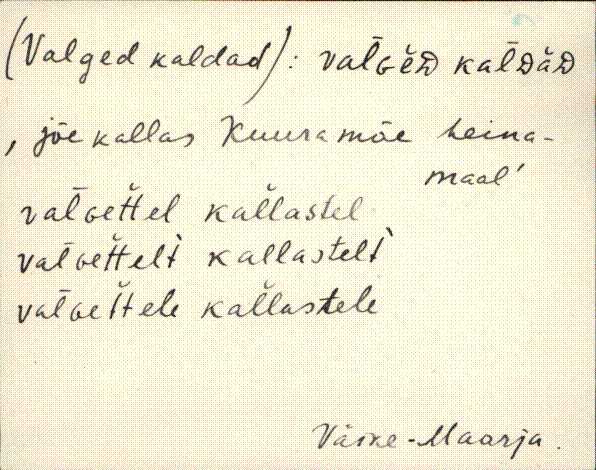 (Valged kaldad): valɢĕᴅ kalᴅăᴅ
, jõe kallas Kuuramäe heina-
maal'
valɢet̆tel kal̆lastel
valɢet̆telt kal̆lastelt
valɢet̆tele kal̆lastele
Väike-Maarja.